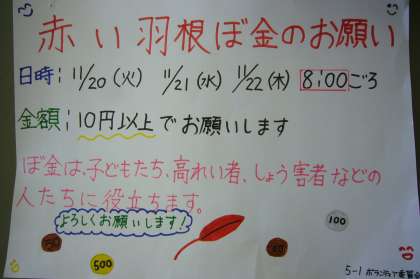 赤い羽根ぼ金のお願い
日時：11/20（火） 11/21（水） 11/22（木） 8:00ごろ
金額：10円以上でお願いします
ぼ金は、子どもたち、高れい者、しょう害者などの
人たちに役立ちます。
よろしくお願いします！
100
500
5-1 ボランティア